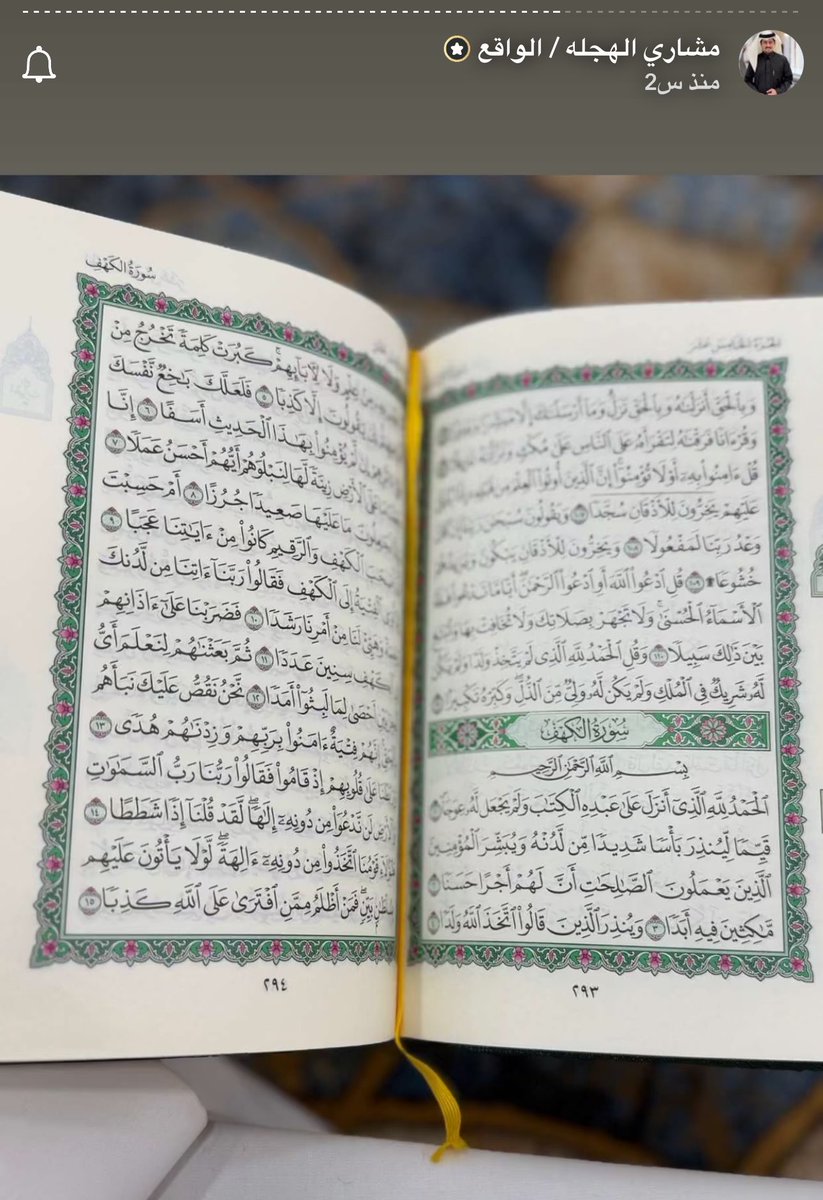 مشاري الهجله / الواقع
منذ س2
الجزء الخامس عشر
وَبِالْحَقِّ أَنزَلْنَاهُ وَبِالْحَقِّ نَزَلَ وَمَا أَرْسَلْنَاكَ إِلَّا
وَقُرْءَانًا فَرَقْنَاهُ لِتَقْرَأَهُ عَلَى النَّاسِ عَلَىٰ مُكْثٍ وَنَزَّلْنَاهُ
قُلْ ءَامِنُوا بِهِ أَوْ لَا تُؤْمِنُوا إِنَّ الَّذِينَ أُوتُوا الْعِلْمَ مِن قَبْلِهِ
عَلَيْهِمْ يَخِرُّونَ لِلْأَذْقَانِ سُجَّدًا ١٠٧ وَيَقُولُونَ سُبْحَانَ
وَعْدُ رَبِّنَا لَمَفْعُولًا ١٠٨ وَيَخِرُّونَ لِلْأَذْقَانِ يَبْكُونَ
خُشُوعًا ۩ ١٠٩ قُلِ ادْعُوا اللَّهَ أَوِ ادْعُوا الرَّحْمَٰنَ أَيًّا مَّا تَدْعُوا
الْأَسْمَاءُ الْحُسْنَىٰ وَلَا تَجْهَرْ بِصَلَاتِكَ وَلَا تُخَافِتْ بِهَا
بَيْنَ ذَٰلِكَ سَبِيلًا ١١٠ وَقُلِ الْحَمْدُ لِلَّهِ الَّذِي لَمْ يَتَّخِذْ وَلَدًا وَلَمْ يَكُن
لَّهُ شَرِيكٌ فِي الْمُلْكِ وَلَمْ يَكُن لَّهُ وَلِيٌّ مِّنَ الذُّلِّ وَكَبِّرْهُ تَكْبِيرًا
سُورَةُ الْكَهْفِ
بِسْمِ اللَّهِ الرَّحْمَٰنِ الرَّحِيمِ
الْحَمْدُ لِلَّهِ الَّذِي أَنزَلَ عَلَىٰ عَبْدِهِ الْكِتَابَ وَلَمْ يَجْعَل لَّهُ عِوَجَا
قَيِّمًا لِّيُنذِرَ بَأْسًا شَدِيدًا مِّن لَّدُنْهُ وَيُبَشِّرَ الْمُؤْمِنِينَ
الَّذِينَ يَعْمَلُونَ الصَّالِحَاتِ أَنَّ لَهُمْ أَجْرًا حَسَنًا
مَّاكِثِينَ فِيهِ أَبَدًا ٣ وَيُنذِرَ الَّذِينَ قَالُوا اتَّخَذَ اللَّهُ وَلَدًا
٢٩٣
سُورَةُ الْكَهْفِ
مِنْ عِلْمٍ وَلَا لِآبَائِهِمْ كَبُرَتْ كَلِمَةً تَخْرُجُ مِنْ
يَقُولُونَ إِلَّا كَذِبًا ٥ فَلَعَلَّكَ بَاخِعٌ نَّفْسَكَ
لَّمْ يُؤْمِنُوا بِهَٰذَا الْحَدِيثِ أَسَفًا ٦ إِنَّا
عَلَى الْأَرْضِ زِينَةً لَّهَا لِنَبْلُوَهُمْ أَيُّهُمْ أَحْسَنُ عَمَلًا ٧
مَا عَلَيْهَا صَعِيدًا جُرُزًا ٨ أَمْ حَسِبْتَ
الْكَهْفِ وَالرَّقِيمِ كَانُوا مِنْ ءَايَاتِنَا عَجَبًا ٩
الْفِتْيَةُ إِلَى الْكَهْفِ فَقَالُوا رَبَّنَا ءَاتِنَا مِن لَّدُنكَ
وَهَيِّئْ لَنَا مِنْ أَمْرِنَا رَشَدًا ١٠ فَضَرَبْنَا عَلَىٰ ءَاذَانِهِمْ
كَهْفِ سِنِينَ عَدَدًا ١١ ثُمَّ بَعَثْنَاهُمْ لِنَعْلَمَ أَيُّ
أَحْصَىٰ لِمَا لَبِثُوا أَمَدًا ١٢ نَّحْنُ نَقُصُّ عَلَيْكَ نَبَأَهُم
إِنَّهُمْ فِتْيَةٌ ءَامَنُوا بِرَبِّهِمْ وَزِدْنَاهُمْ هُدًى ١٣
عَلَىٰ قُلُوبِهِمْ إِذْ قَامُوا فَقَالُوا رَبُّنَا رَبُّ السَّمَاوَاتِ
لَن نَّدْعُوَا مِن دُونِهِ إِلَٰهًا لَّقَدْ قُلْنَا إِذًا شَطَطًا ١٤
قَوْمُنَا اتَّخَذُوا مِن دُونِهِ ءَالِهَةً لَّوْلَا يَأْتُونَ عَلَيْهِم
بَيِّنٍ فَمَنْ أَظْلَمُ مِمَّنِ افْتَرَىٰ عَلَى اللَّهِ كَذِبًا ١٥
٢٩٤